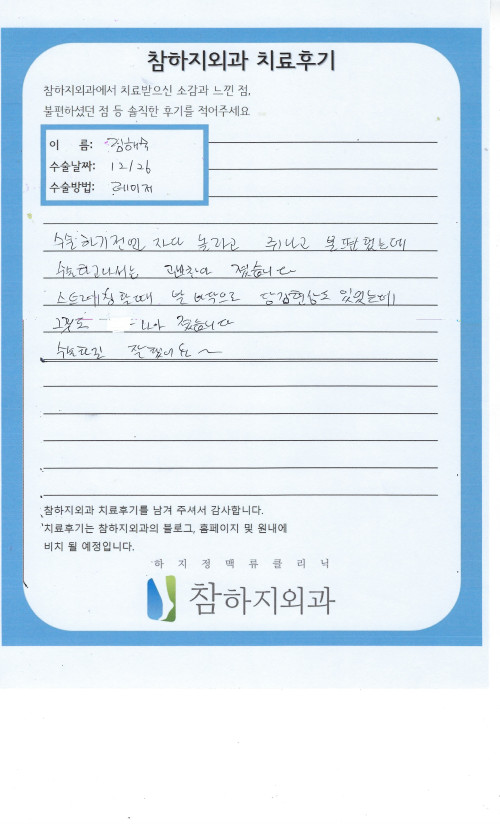 참하지외과 치료후기
참하지외과에서 치료받으신 소감과 느낀 점,
불편하셨던 점 등 솔직한 후기를 적어주세요
이 름: 김해숙
수술날짜: 12/26
수술방법: 레이저
수술하기전엔 자다 놀라고 쥐나고 불편했는데
수술하고나서는 괜찮아 졌습니다
스트레칭할때 발바닥으로 당김현상도 있었는데
그것도 나아 졌습니다
수술하길 잘했네요 ~
참하지외과 치료후기를 남겨 주셔서 감사합니다.
치료후기는 참하지외과의 블로그, 홈페이지 및 원내에
비치 될 예정입니다.
하지정맥류클리닉
참하지외과